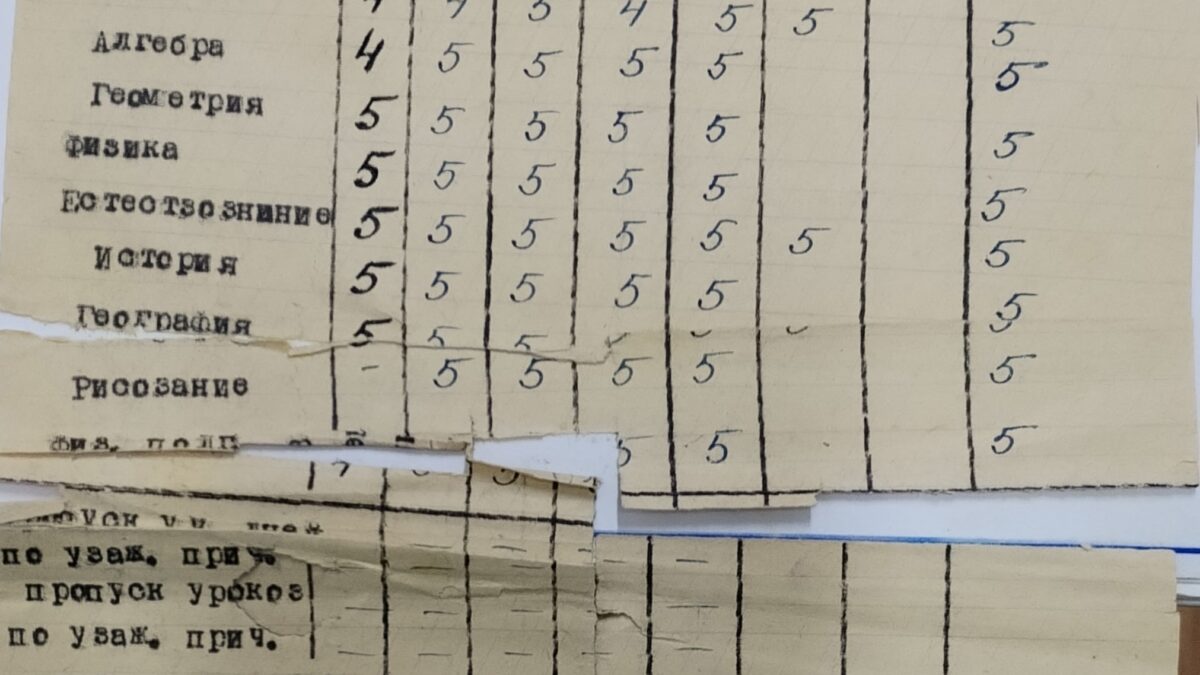 4 4 5 4 5 5 5
Алгебра 4 5 5 5 5 5
Геометрия 5 5 5 5 5 5
физика 5 5 5 5 5 5
Естествознние 5 5 5 5 5 5 5
История 5 5 5 5 5 5
География 5 5 5 5
Рисозание - 5 5 5 5 5
физ. 5 5 5
по узаж. прич. — — — — —
пропуск урокоз — — — — —
по узаж. прич. — — — — —